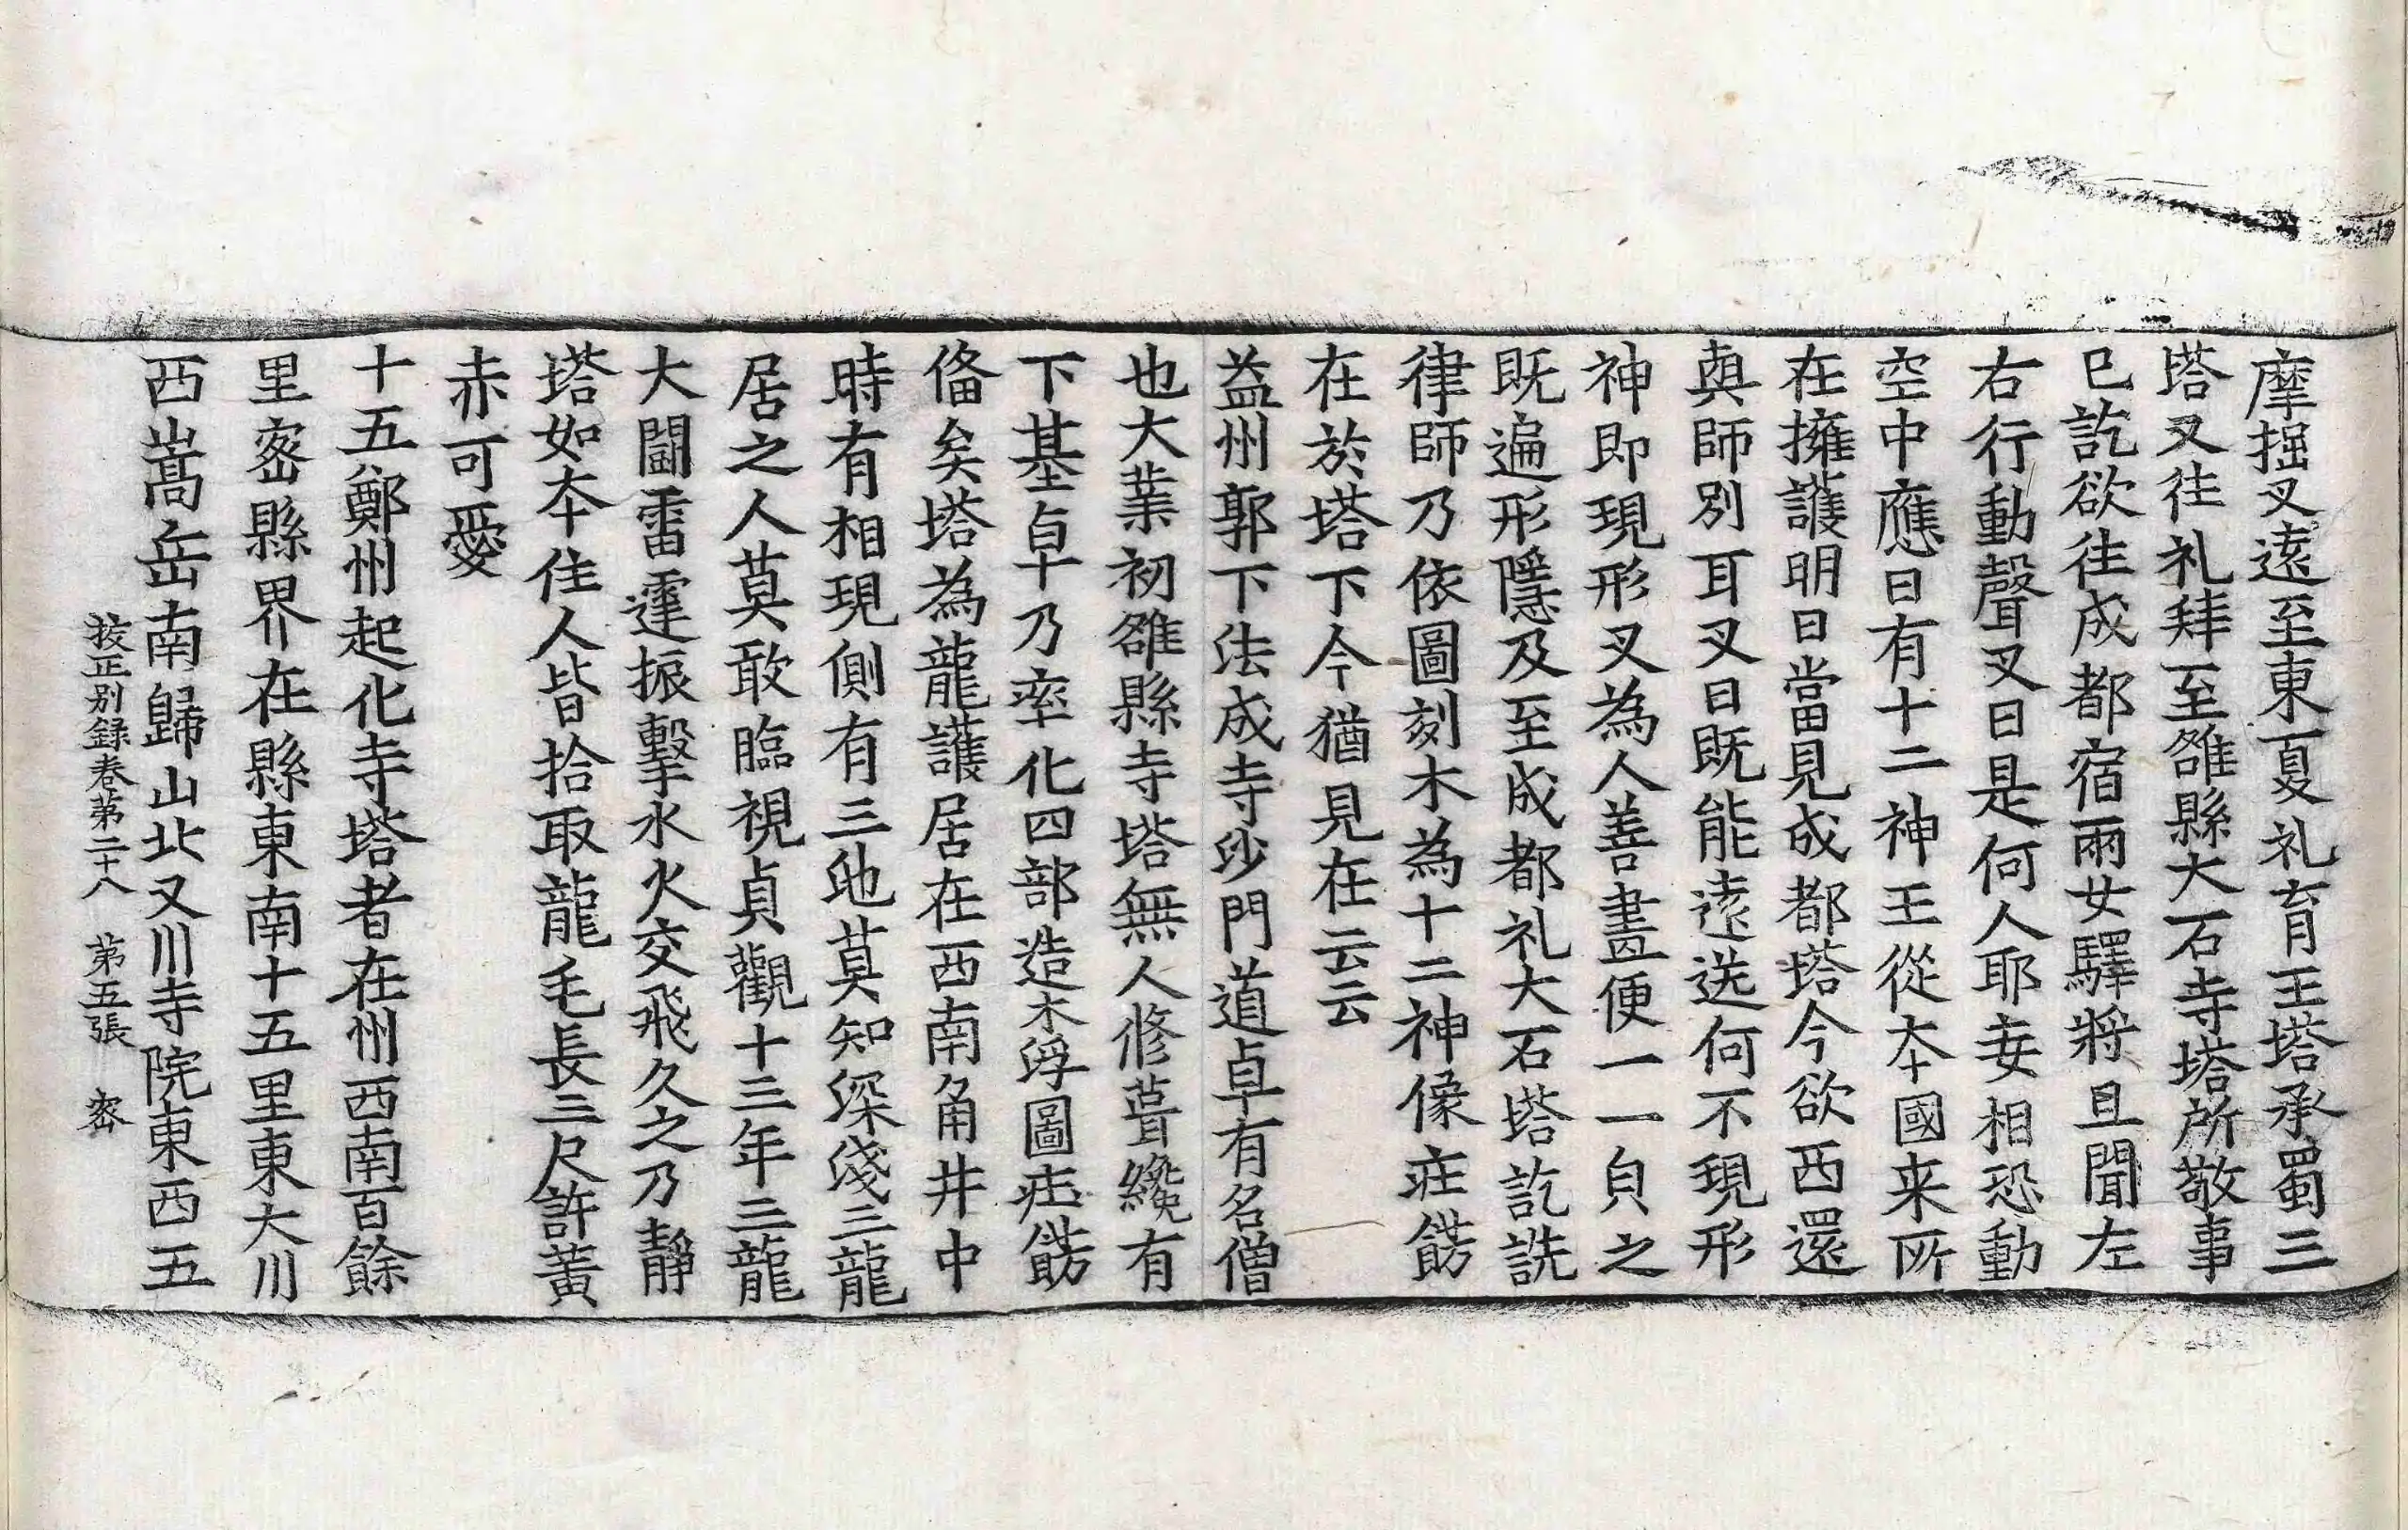 摩掘叉遠至東夏礼育王塔承蜀三
塔又往礼拜至雒縣大石寺塔所敬事
已訖欲往成都宿兩女驛將旦聞左
右行動聲叉曰是何人耶妄相恐動
空中應曰有十二神王從夲國来所
在擁護明日當見成都塔今欲西還
與師別耳叉曰既能遠送何不現形
神即現形叉為人善畫便一一貟之
既遍形隱及至成都礼大石塔訖詵
律師乃依圖刻木為十二神像疘餝
在於塔下今猶見在云云
益州郭下法成寺沙門道卓有名僧
也大業初雒縣寺塔無人修葺纔有
下基卓乃率化四部造木浮圖疘餝
俻矣塔為龍護居在西南角井中
時有相現側有三池莫知深淺三龍
居之人莫敢臨視貞觀十三年三龍
大鬪雷霆振擊水火交飛久之乃靜
塔如夲住人皆拾取龍毛長三尺許黃
赤可愛
十五鄭州起化寺塔者在州西南百餘
里密縣界在縣東南十五里東大川
西嵩岳南歸山北又川寺院東西五
挍正別録卷第二十八 第五張 密